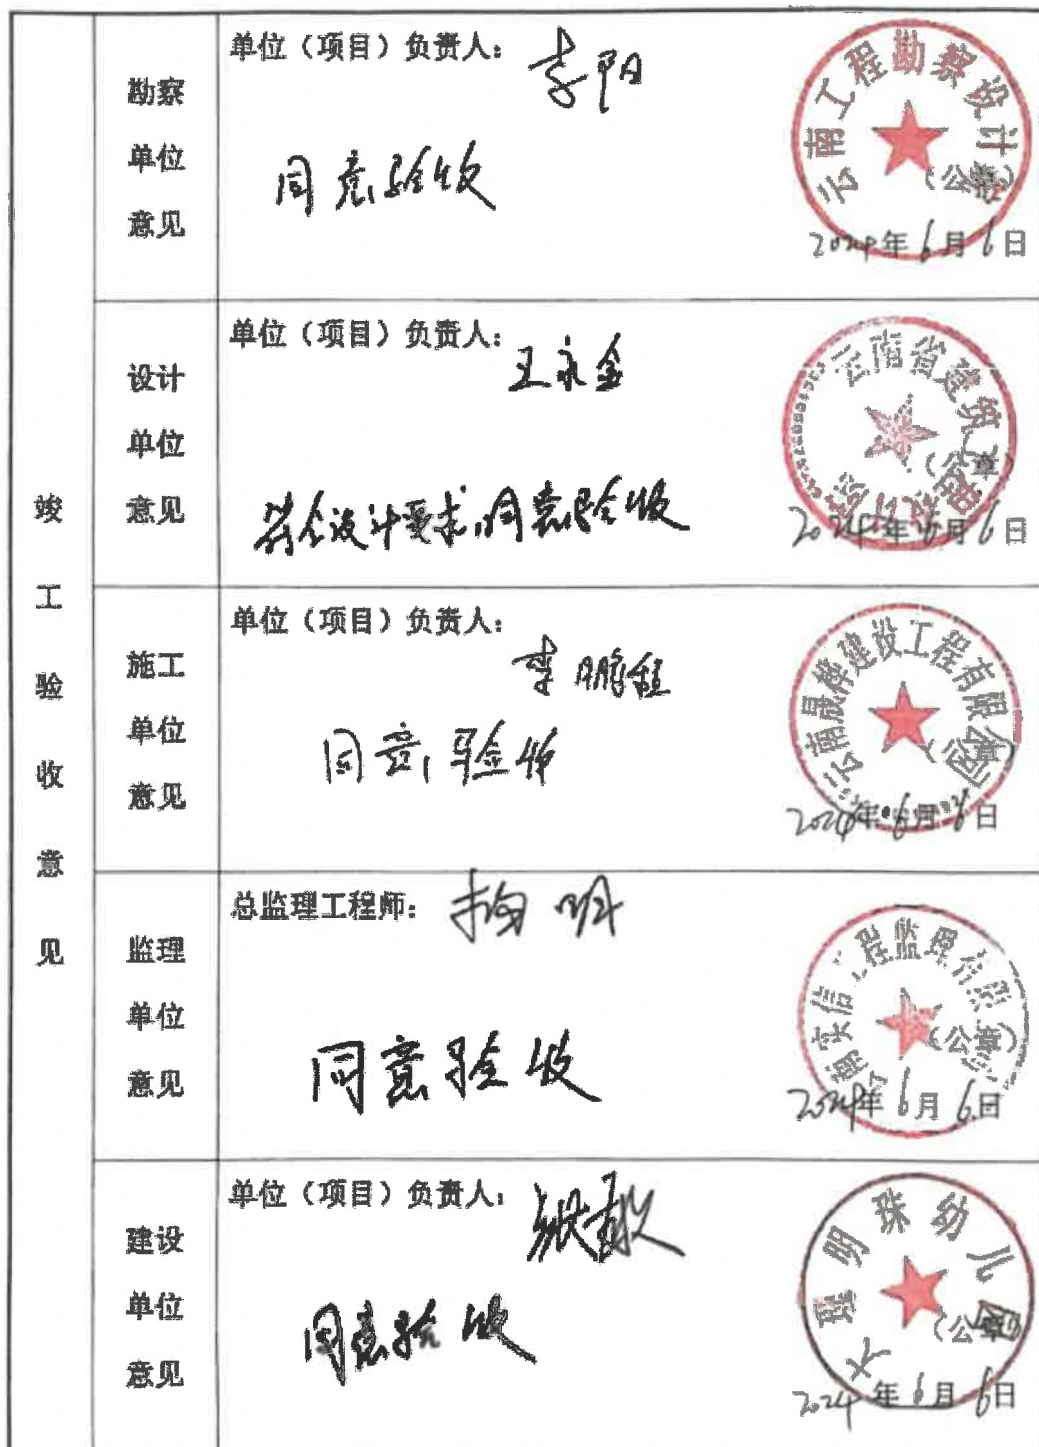 竣工验收意见
勘察单位意见
单位（项目）负责人：李阳
同意验收
云南工程勘察设计院
（公章）
2024年6月6日
设计单位意见
单位（项目）负责人：王永金
符合设计要求，同意验收
云南省建筑工程设计院
（公章）
2024年6月6日
施工单位意见
单位（项目）负责人：李鹏程
同意验收
云南晟桦建设工程有限公司
（公章）
2024年6月6日
监理单位意见
总监理工程师：
同意验收
实信工程监理有限公司
（公章）
2024年6月6日
建设单位意见
单位（项目）负责人：
同意验收
大理明珠幼儿园
（公章）
2024年6月6日